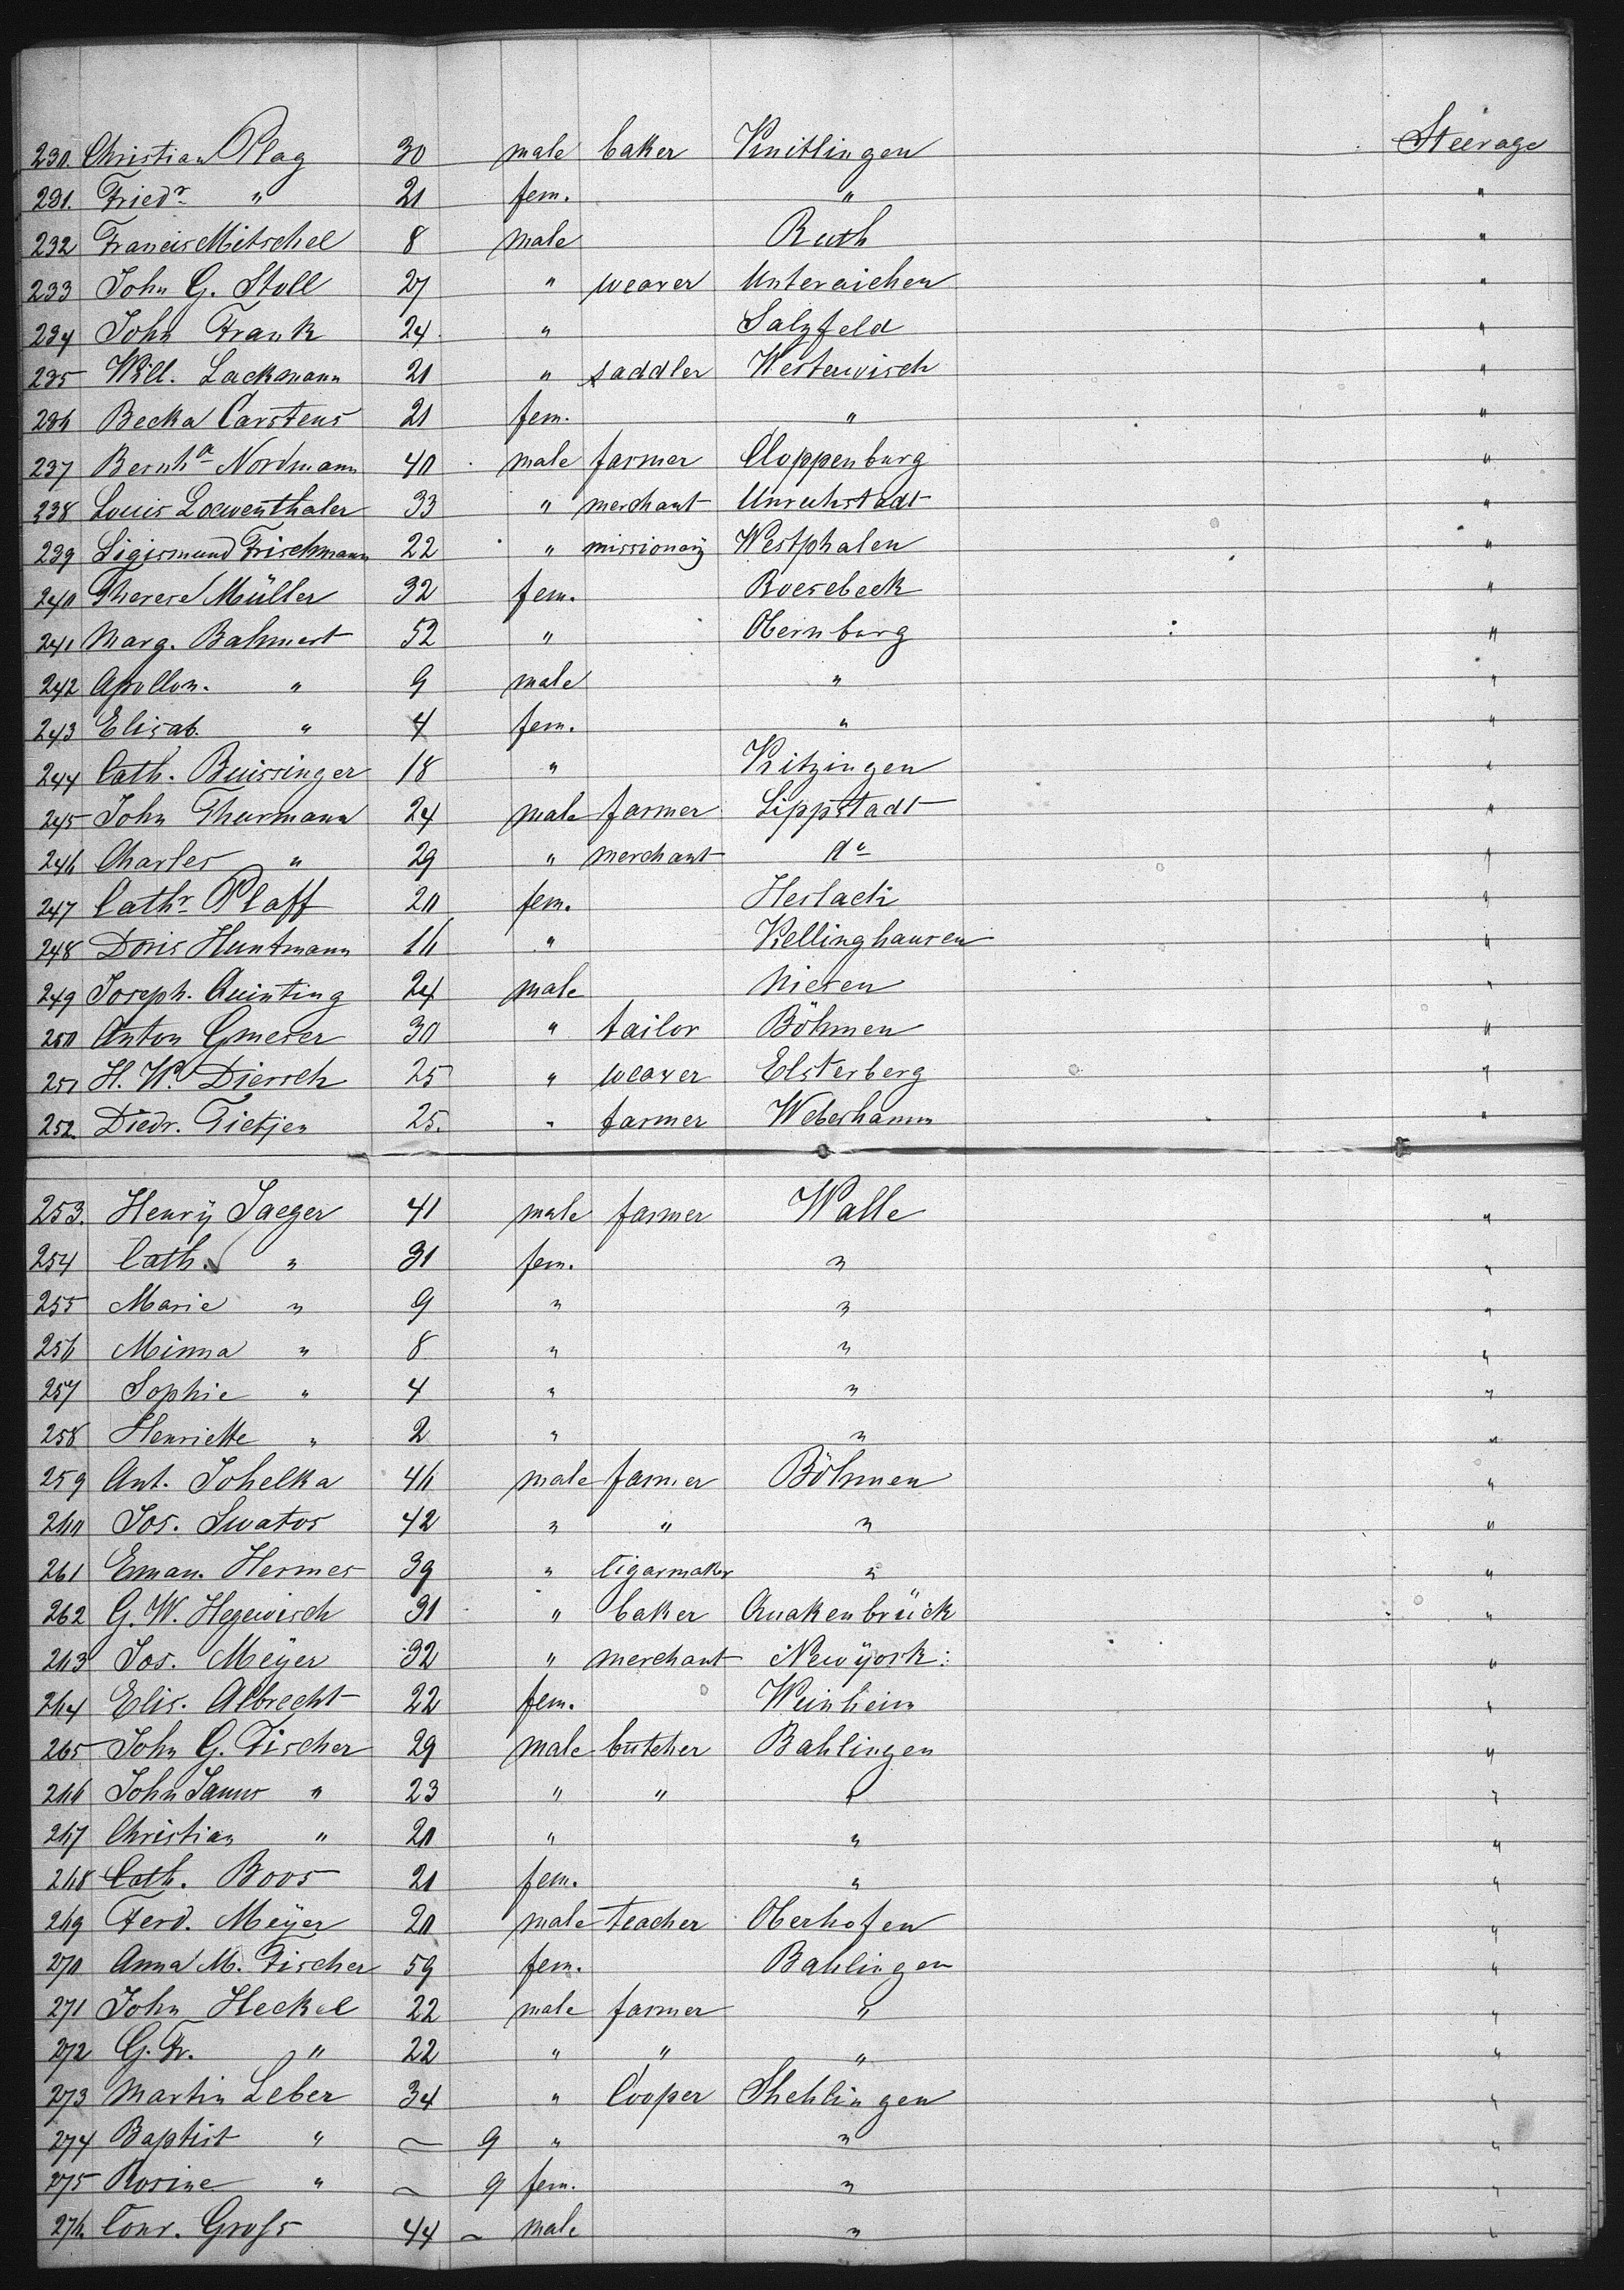 230. Christian Plag 30 male baker Knitlingen Steerage
231. Friedr. " 21 fem. " "
232 Francis Mitschel 8 male Ruth "
233 John G. Stoll 27 " weaver Unteraichen "
234 John Frank 24. " Salzfeld "
235 Will. Lackmann 21 " saddler Westerwisch "
236 Becka Carstens 21 fem. " "
237 Bernhd Nordmann 40 male farmer Cloppenburg "
238 Louis Loewenthaler 33 " merchant Unruhstadt "
239 Sigismund Frischmann 22 " missionarÿ Westphalen "
240 Therese Müller 32 fem. Roesebeck "
241 Marg. Bahmert 52 " Obernburg "
242 Apollon. " 9 male " "
243 Elisab. " 4 fem. " "
244 Cath. Buissinger 18 " Kitzingen "
245 John Thurmann 24 male farmer Lippstadt "
246 Charles " 29 " merchant do "
247 Cathr. Plaff 20 fem. Heslach "
248 Doris Huntmann 16 " Kellinghausen "
249 Joseph. Quinting 24 male Niesen "
250 Anton Gmeser 30 " tailor Böhmen "
251 H. W. Diersch 25 " weaver Elsterberg "
252. Diedr. Tietjen 25. " farmer Webeshamm "
253. Henrÿ Jaeger 41 male farmer Walle "
254 Cath. " 31 fem. " "
255 Marie " 9 " " "
256 Minna " 8 " " "
257 Sophie " 4 " " "
258 Henriette " 2 " " "
259 Ant. Johelka 46 male farmer Böhmen "
260 Jos. Swatos 42 " " " "
261 Eman. Hermes 39 " Cigarmaker " "
262 G. W. Hegewisch 31 " baker Quakenbrück "
263 Jos. Meÿer 32 " merchant Newÿork: "
264 Elis. Albrecht 22 fem. Weinheim "
265 John G. Fischer 29 male butcher Bahlingen "
266 John " 23 " " " "
267 Christian " 20 " " "
268 Cath. Boos 21 fem. " "
269 Ferd. Meÿer 20 male teacher Oberhofen "
270 Anna M. Fischer 59 fem. Bahlingen "
271 John Heckel 22 male farmer " "
272 G. Fr. " 22 " " " "
273 Martin Leber 34 " Cooper Shehlingen "
274 Baptist " ~ 9 " " "
275 Rosine " ~ 9 fem. " "
276. Conr. Groſs 44 ~ male " "